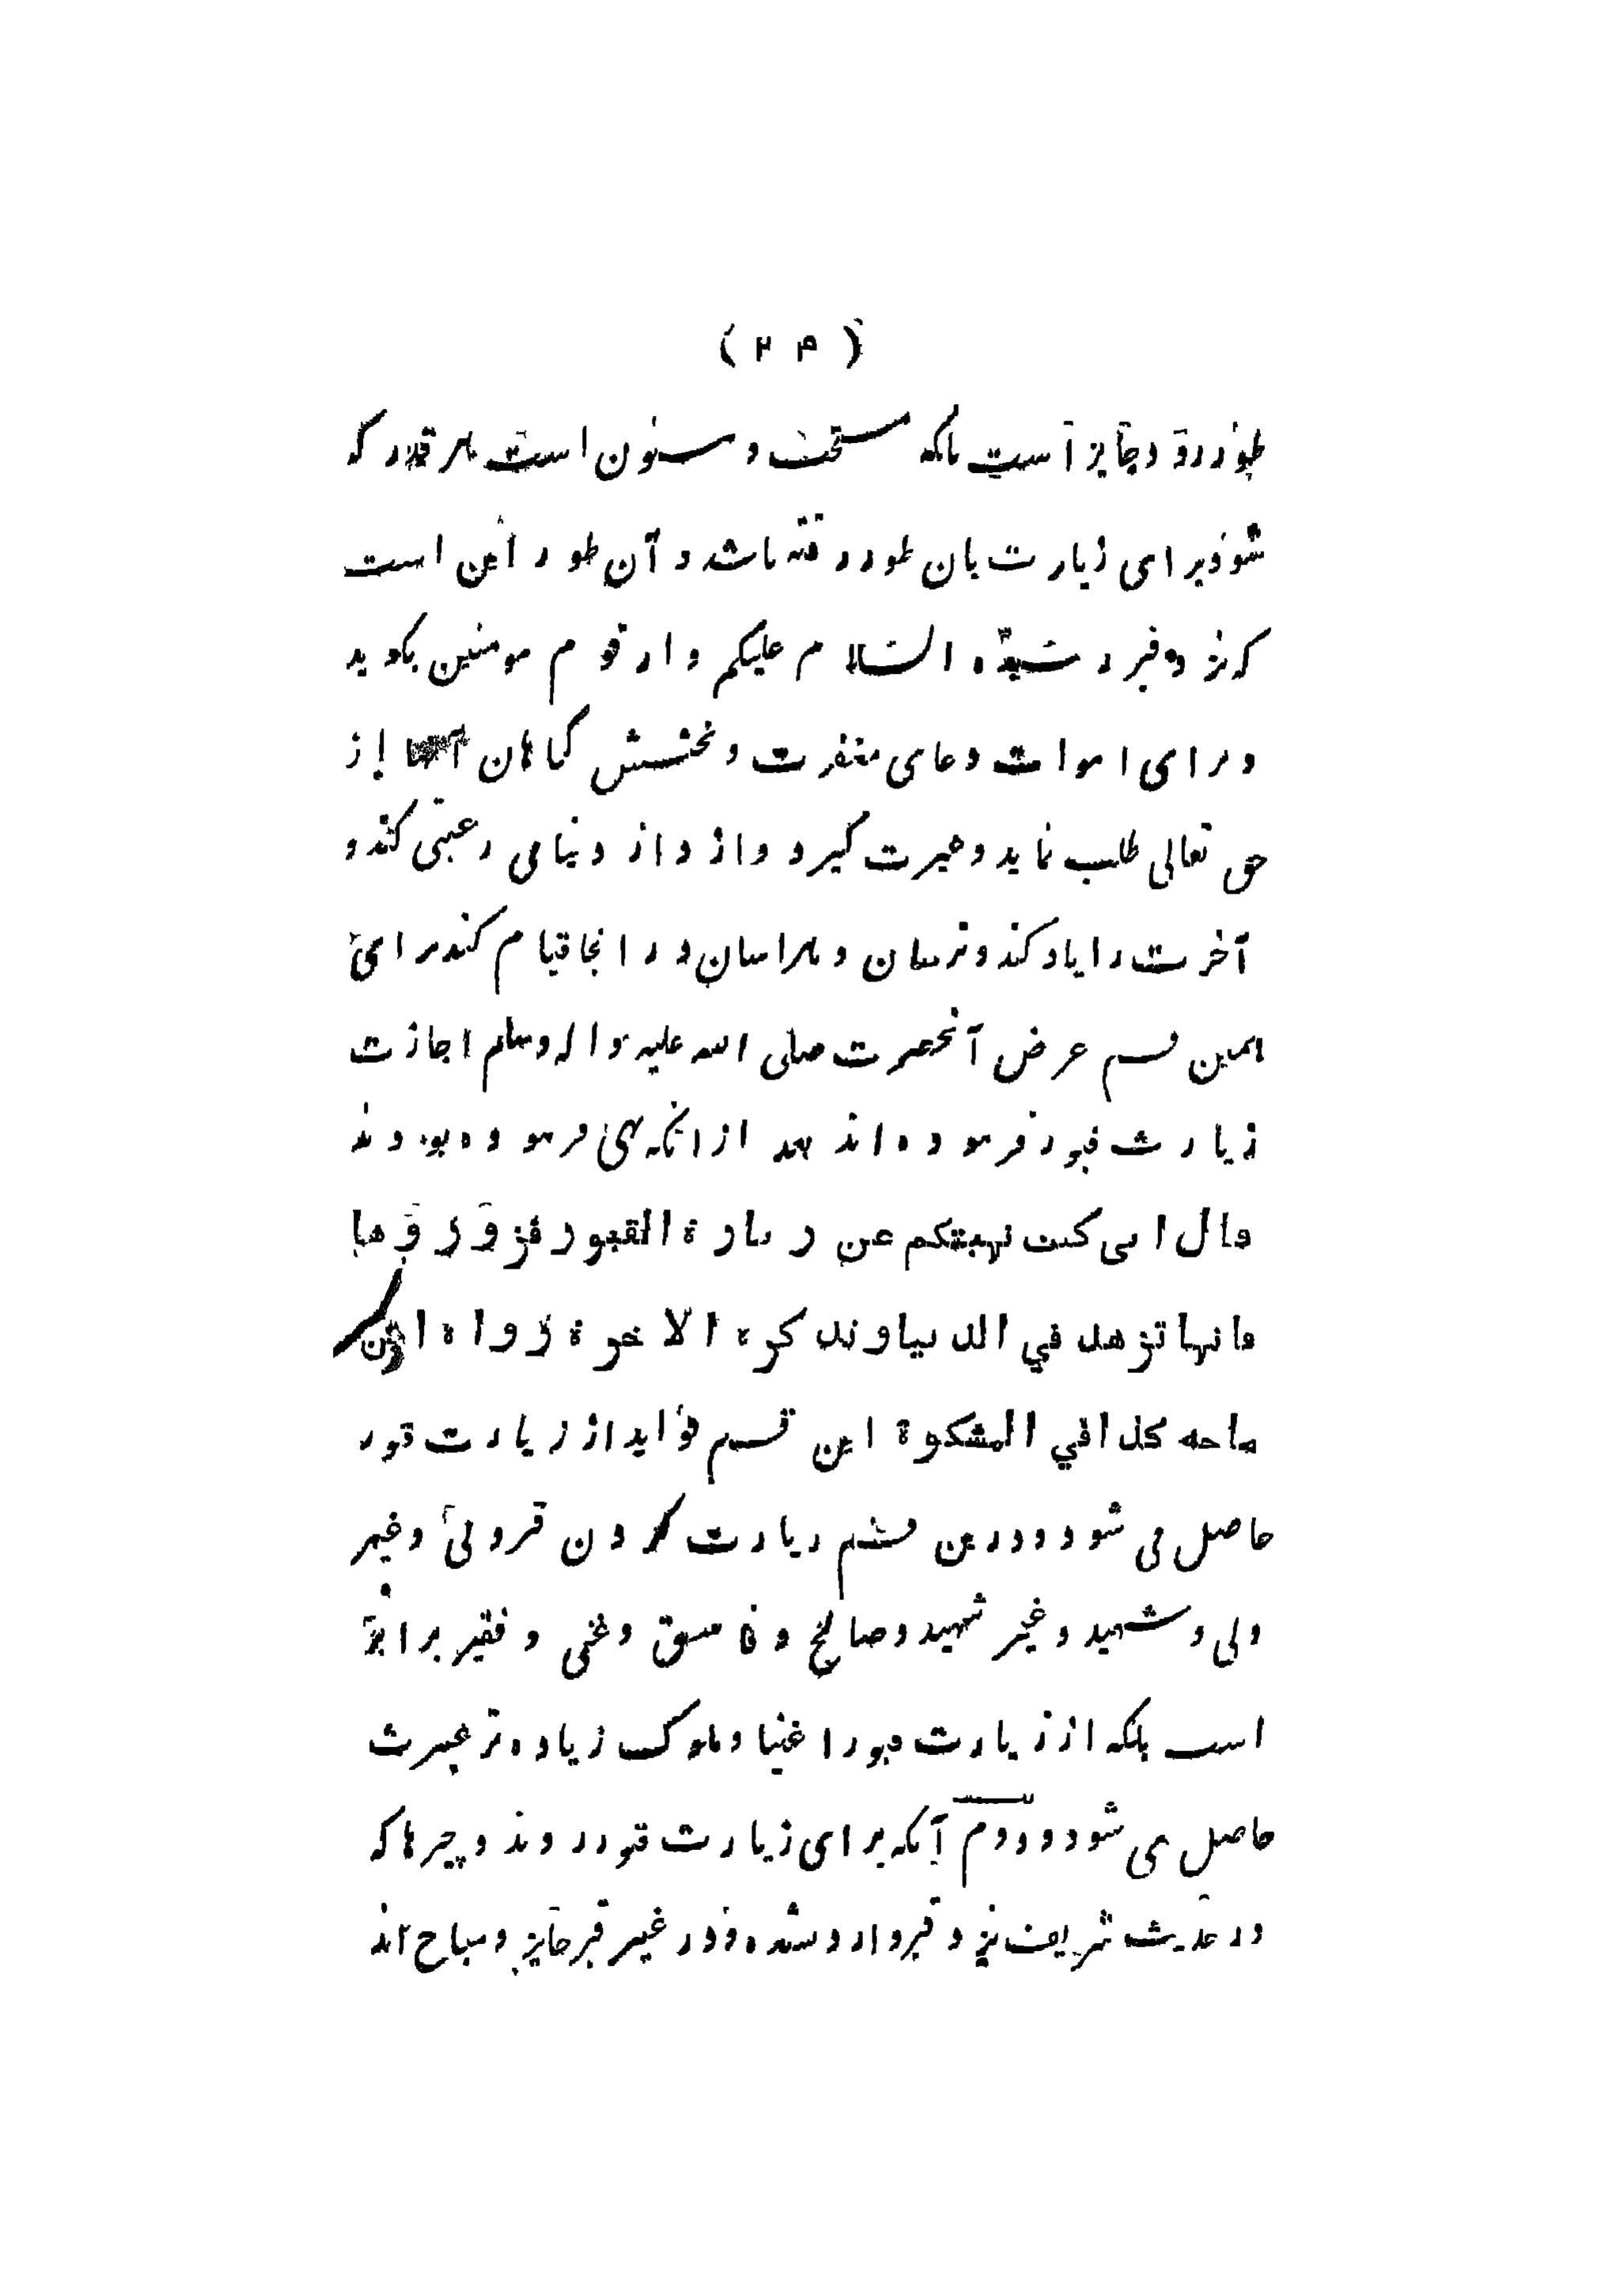 ( ۲۴ )
طور رود جایز است بلکه مستحب و مسنون است هر قدر که
شود برای زیارت بان طور رفته باشد و آن طور این است
که نزد قبر رسیده السلام علیکم دار قوم مومنین بگوید
و برای اموات دعای مغفرت و بخشش گناهان آنها از
حق تعالی طلب نماید و عبرت گیرد و از دنیا بی رغبتی کند و
آخرت را یاد کند و ترسان و هراسان در انجا قیام کند برای
همین قسم غرض آنحضرت صلی الله علیه و اله وسلم اجازت
زیارت قبور فرموده اند بعد از انکه نهی فرموده بودند
قال انی کنت نهیتکم عن زیارة القبور فزوروها
فانها تزهد في الدنیا وتذکرة الاخرة رواه ابن
ماجه کذا في المشکوة این قسم فواید از زیارت قبور
حاصل می شود و درین قسم زیارت کردن قبر ولی و غیر
ولی و شهید و غیر شهید و صالح و فاسق و غنی و فقیر برابر
است بلکه از زیارت قبور اغنیا و ملوک زیاده تر عبرت
حاصل می شود و دوم آنکه برای زیارت قبور روند و چیزها که
در حدیث شریف نزد قبر وارد شده و در غیر قبر جایز و مباح اند